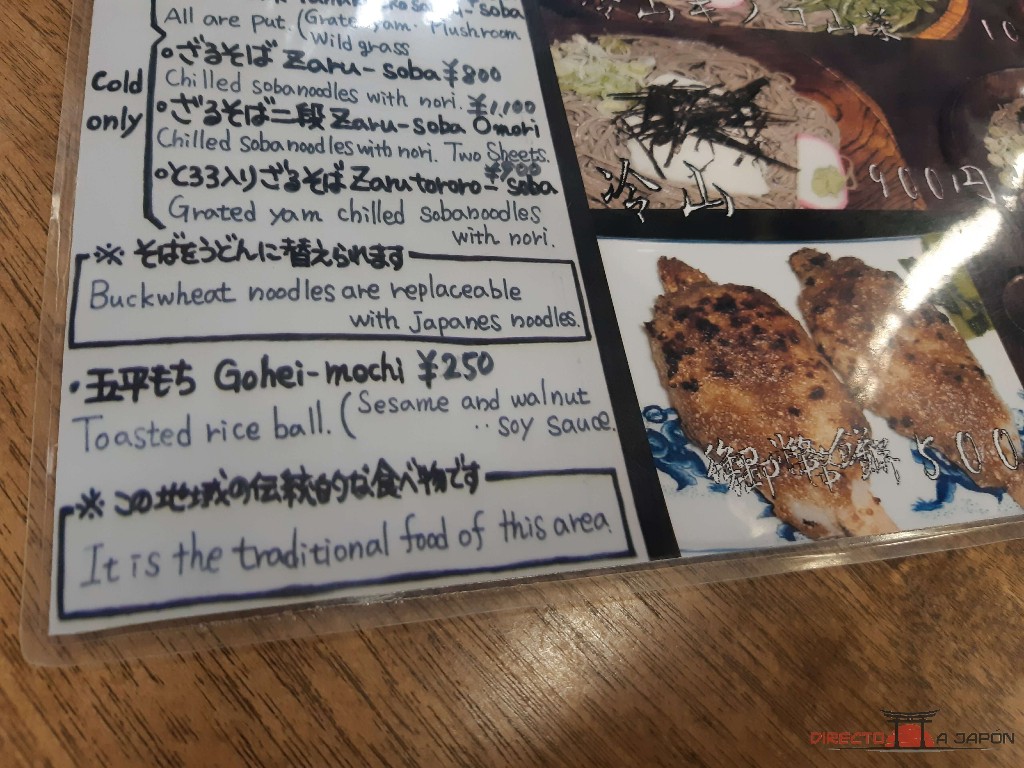 All are put. (Grate yam. Mushroom
Wild grass
Cold only
・ざるそば Zaru-soba ¥800
Chilled soba noodles with nori.
・ざるそば二段 Zaru-soba Omori ¥1,100
Chilled soba noodles with nori. Two Sheets.
・とろろ入りざるそば Zaru tororo-soba ¥900
Grated yam chilled soba noodles
with nori.
※ そばをうどんに替えられます
Buckwheat noodles are replaceable
with Japanes noodles.
・五平もち Gohei-mochi ¥250
Toasted rice ball. (Sesame and walnut
soy sauce.
※ この地域の伝統的な食べ物です
It is the traditional food of this area.
冷山キノコ山菜 10
冷山 900円
御幣餅 500
DIRECTO A JAPÓN